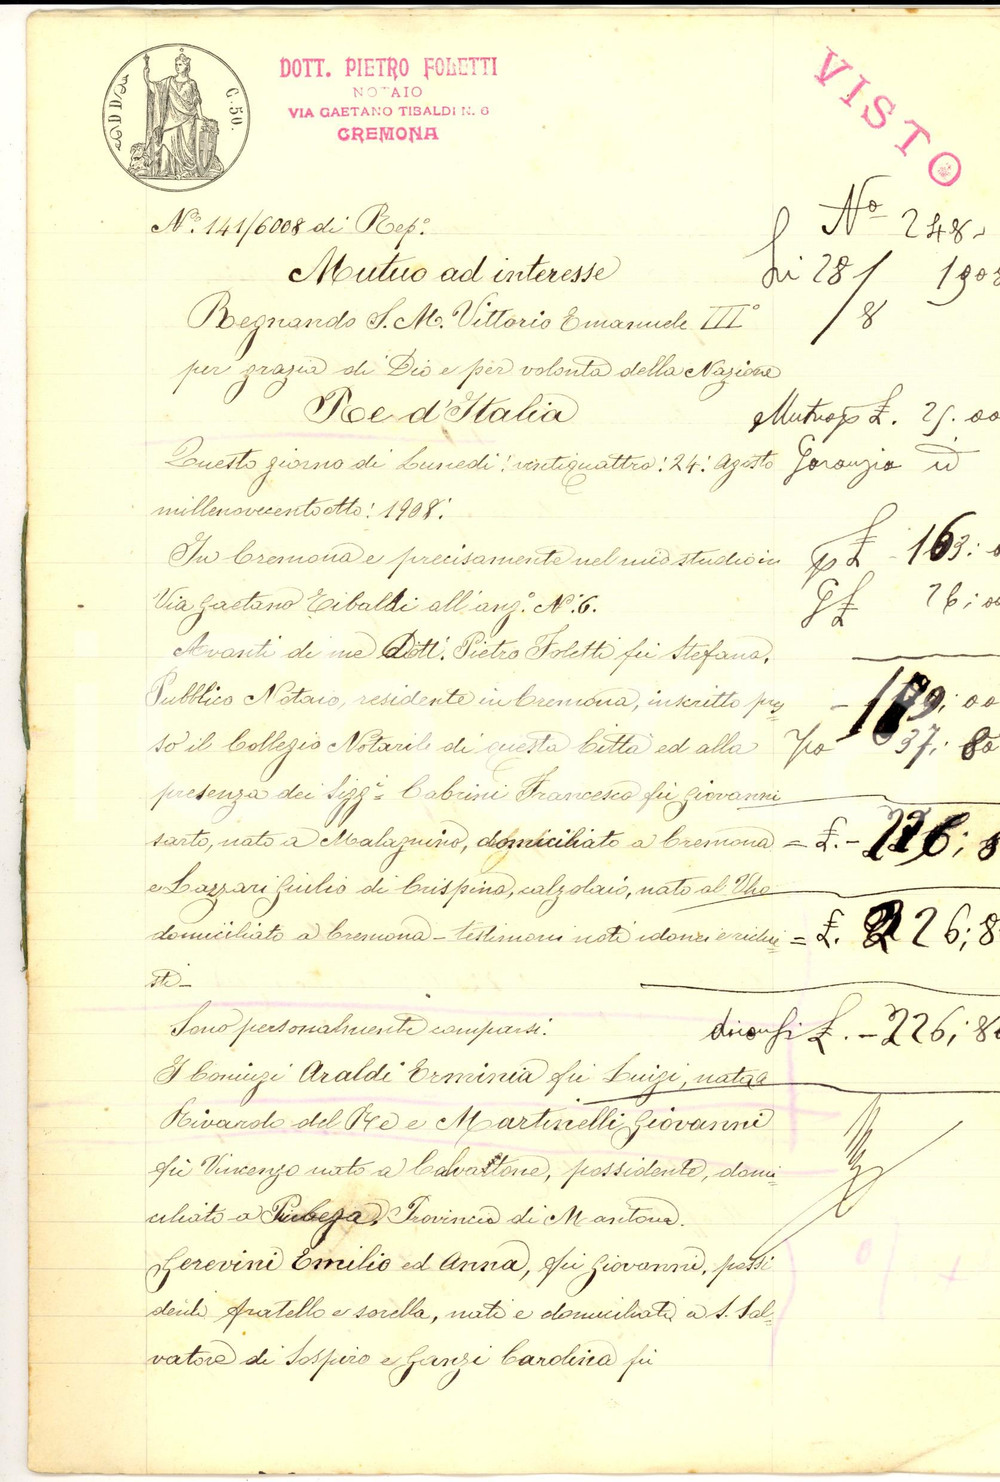 C. 50.
DOTT. PIETRO FOLETTI
NOTAIO
VIA GAETANO TIBALDI N. 6
CREMONA
VISTO
N.° 141/6008 di Rep.°
Mutuo ad interesse
Regnando S. M. Vittorio Emanuele III°
per grazia di Dio e per volontà della Nazione
Re d'Italia
Questo giorno di Lunedì : ventiquattro : 24 : Agosto
millenovecentootto : 1908 :
In Cremona e precisamente nel mio studio in
Via Gaetano Tibaldi all'anz.° N.° 6.
Avanti di me Dott. Pietro Foletti fu Stefano,
Pubblico Notaio, residente in Cremona, inscritto pres-
so il Collegio Notarile di questa Città ed alla
presenza dei Sigg.i Cabrini Francesco fu Giovanni
sarto, nato a Malagnino, domiciliato a Cremona
e Lazzari Giulio di Crispino, calzolaio, nato al Vho
domiciliato a Cremona – testimoni noti idonei e richie-
sti –
Sono personalmente comparsi:
I Coniugi Araldi Erminia fu Luigi, nata a
Rivarolo del Re e Martinelli Giovanni
fu Vincenzo nato a Calvatone, possidente, domi-
ciliato a Piubega, Provincia di Mantova.
Gerevini Emilio ed Anna, fu Giovanni, possi
denti fratello e sorella, nati e domiciliati a S. Sal-
vatore di Sospiro e Ganzi Carolina fu
N° 248
li 28/8 1908
Mutuo £. 25.00
Garanzia id
£ 163:
£ 26:00
189:00
37:80
= £. - 226:8
= £. 226:8
£. - 226:80